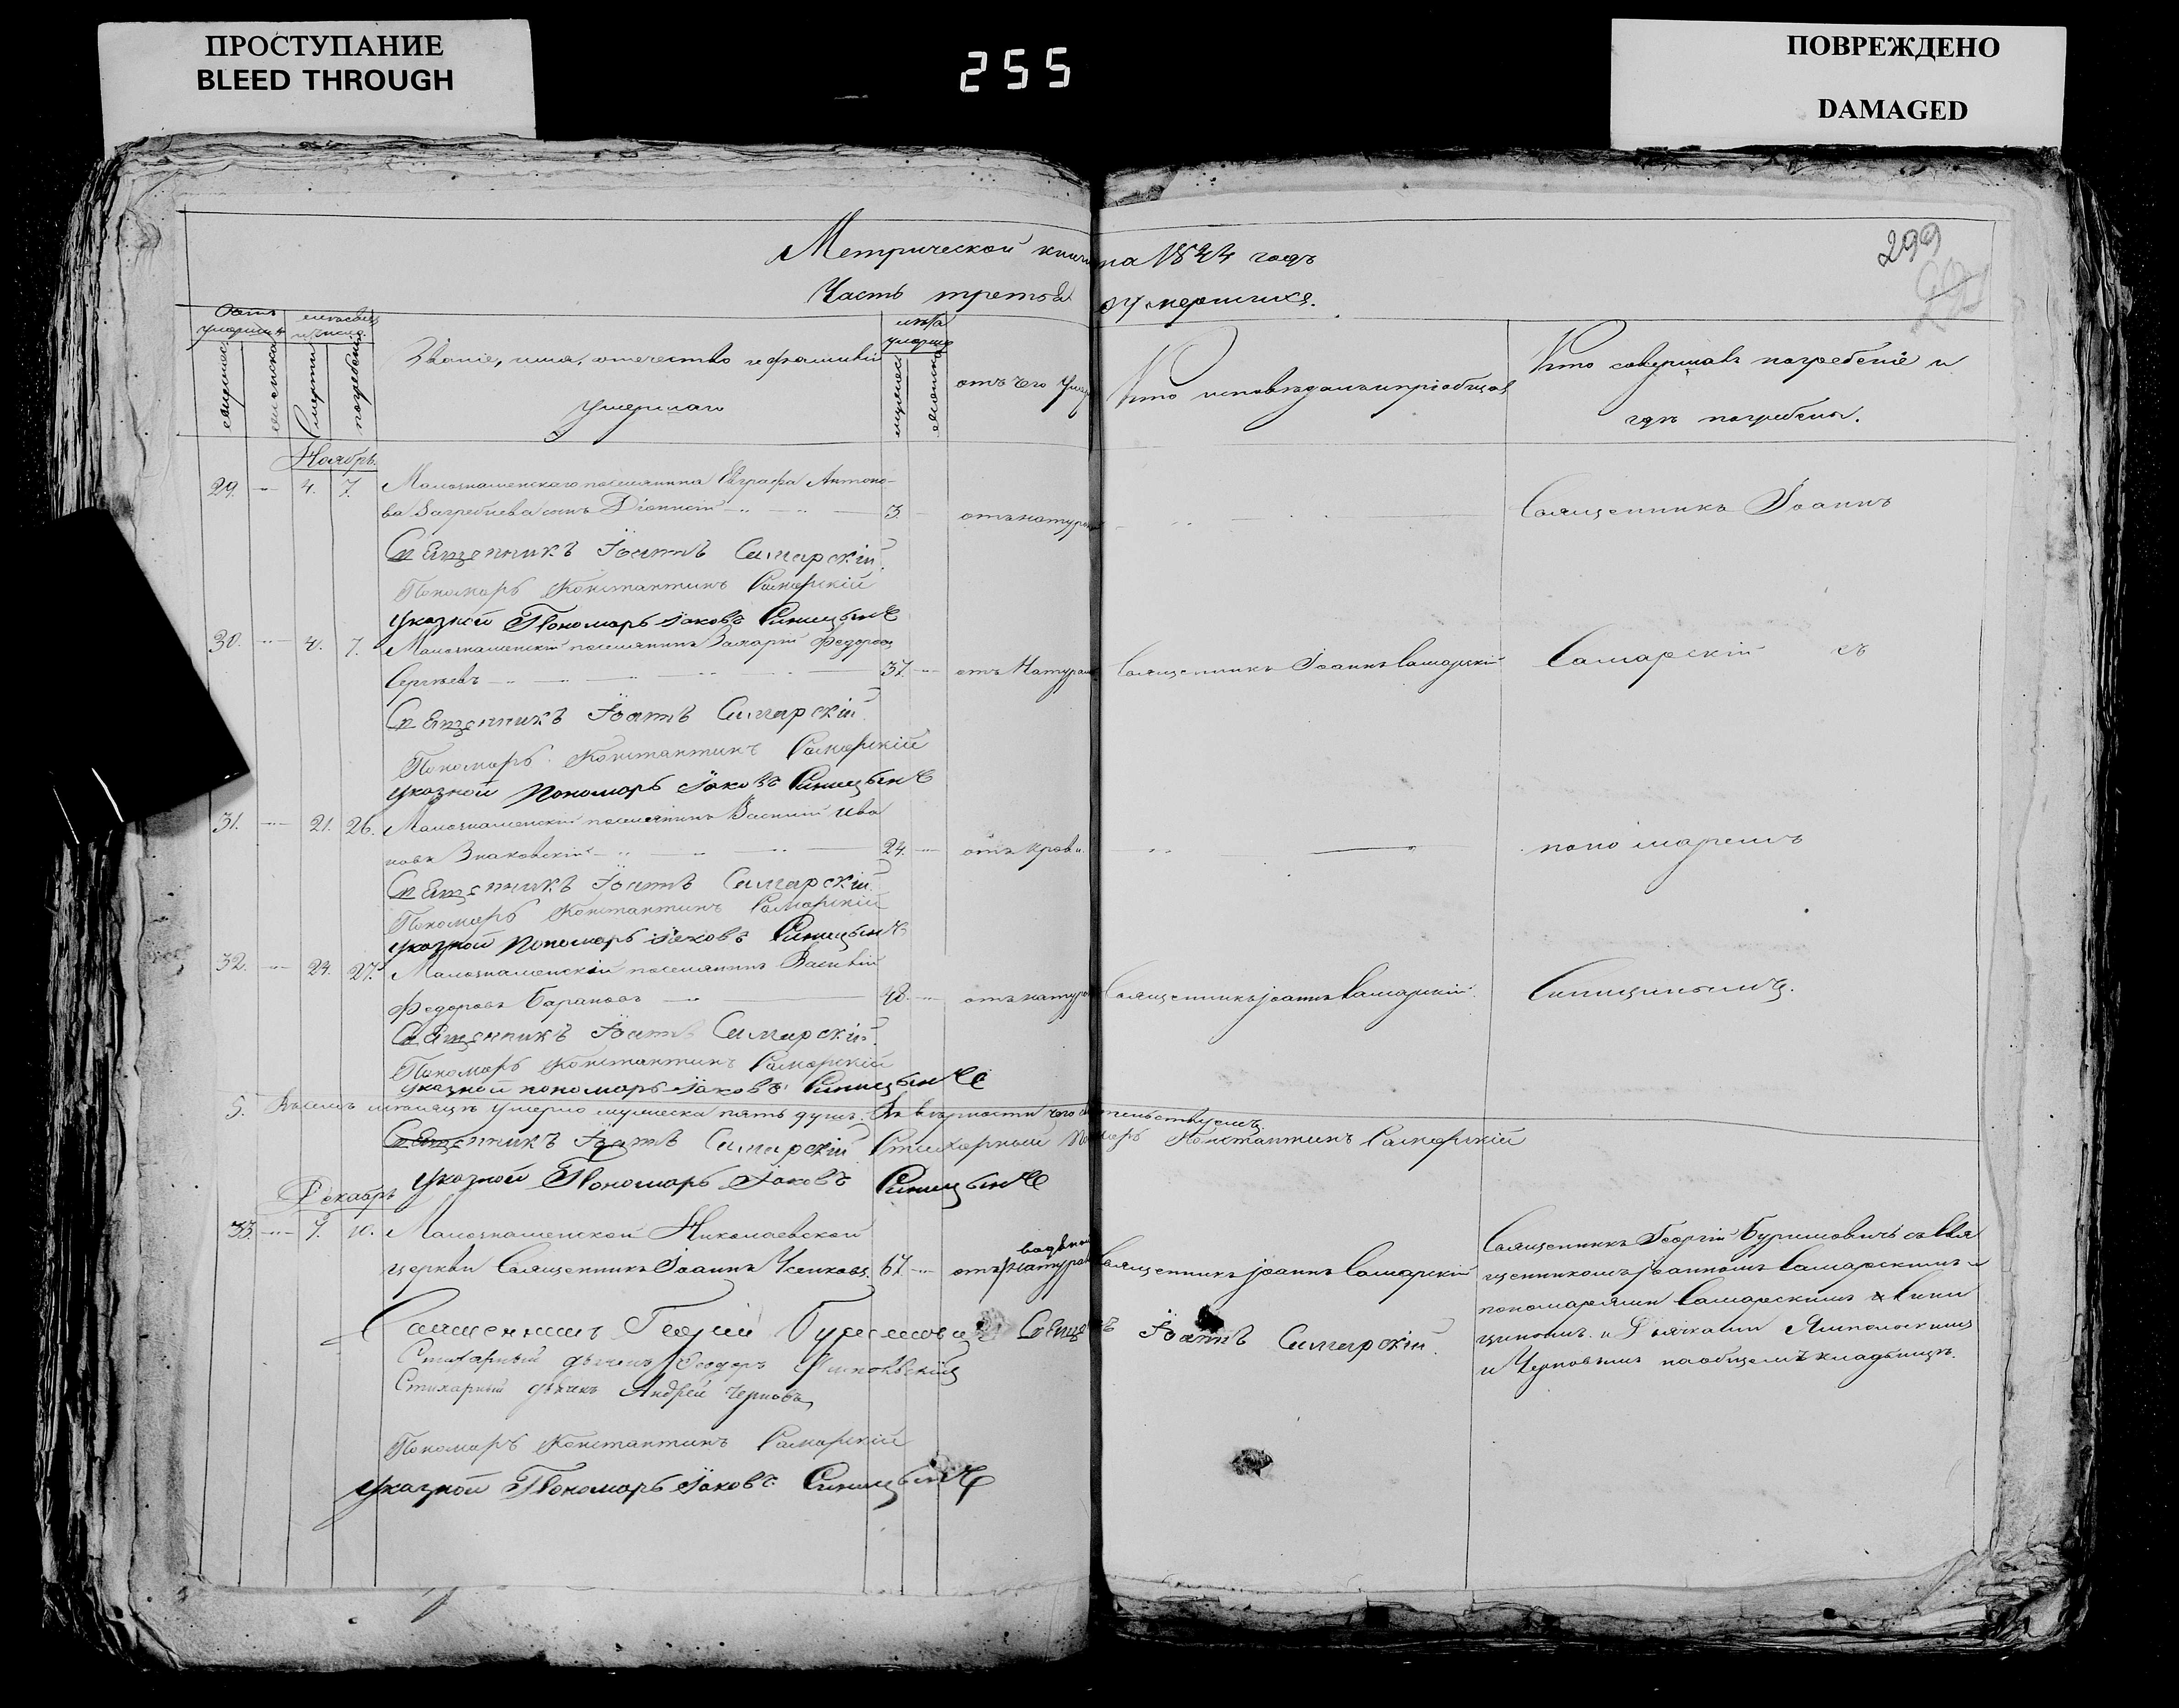 ПРОСТУПАНИЕ
BLEED THROUGH
255
ПОВРЕЖДЕНО
DAMAGED
299
Метрической книги на 1844 годъ
Часть третья о умершихъ.
Звание, имя, отечество и фамилія
умершаго
отъ чего
Кто исповѣдалъ и пріобщалъ
Кто совершалъ погребеніе и
гдѣ погребены.
Ноябрь
29. 4. 7. Малознаменскаго поселянина Евграфа Антоно-
ва Загребнева сынъ Діонисій 3 отъ натуральной
Священникъ Іоаннъ
Священникъ Іоаннъ Самарскій
Пономарь Константинъ Самарскій
указной Пономарь Іаковъ Синицынъ
30. 4. 7. Малознаменскій поселянинъ Захарій Федоровъ
Сергѣевъ 37. отъ Натуральной Священникъ Іоаннъ Самарскій Самарскій съ
Священникъ Іоаннъ Самарскій
Пономарь Константинъ Самарскій
указной пономарь Іаковъ Синицынъ
31. 21. 26. Малознаменскій поселянинъ Василій Ива
новъ Знаковскій 24. отъ крови. пономаремъ
Священникъ Іоаннъ Самарскій
Пономарь Константинъ Самарскій
указной пономарь Іаковъ Синицынъ
32. 24. 27. Малознаменскій поселянинъ Василій
Федоровъ Барановъ 48. отъ натуральной Священникъ Іоаннъ Самарскій Синицынымъ.
Священникъ Іоаннъ Самарскій
Пономарь Константинъ Самарскій
указной пономарь Іаковъ Синицынъ
5. Въ семъ мѣсяцѣ умерло мужеска пять душъ. Въ вѣрности чего свидѣтельствуемъ
Священникъ Іоаннъ Самарскій Стихарный Пономарь Константинъ Самарскій
указной Пономарь Іаковъ Синицынъ
Декабрь
33. 7. 10. Малознаменской Николаевской
церкви Священникъ Іоаннъ 67. отъ водяной Священникъ Іоаннъ Самарскій
Священникъ Георгій Буримовичъ съ Свя
щенникомъ Іоанномъ Самарскимъ и
пономарями Самарскимъ и Сини
цынымъ. и Дьячками
и Черновымъ на общемъ кладбищѣ.
Священникъ Георгій Буримовичъ Священникъ Іоаннъ Самарскій.
Стихарный дьячекъ Феодоръ
Стихарный дьячкъ Андрей Черновъ
Пономарь Константинъ Самарскій
указной Пономарь Іаковъ Синицынъ